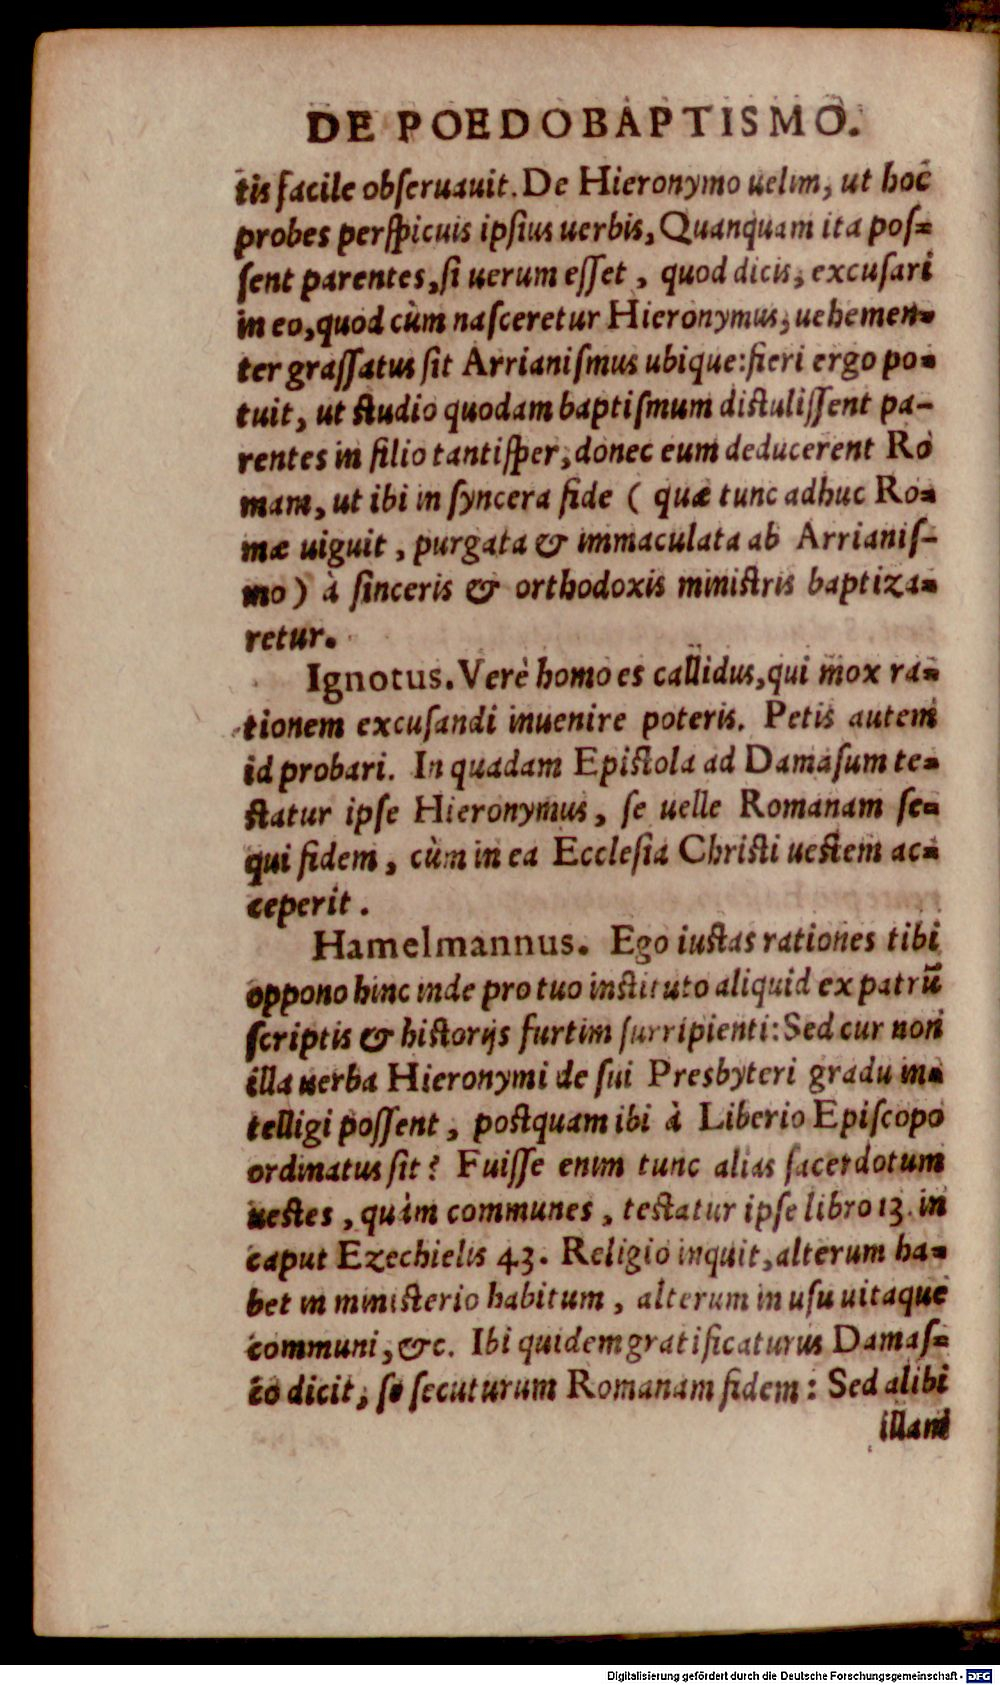 DE POEDOBAPTISMO.
tis facile obſeruauit. De Hieronymo uelim, ut hoc
probes perſpicuis ipſius uerbis, Quanquam ita poſ=
ſent parentes, ſi uerum eſſet, quod dicis, excuſari
in eo, quod cùm naſceretur Hieronymus, uehemen=
ter graſſatus ſit Arrianiſmus ubique: fieri ergo po=
tuit, ut ſtudio quodam baptiſmum diſtuliſſent pa-
rentes in filio tantiſper, donec eum deducerent Ro
mam, ut ibi in ſyncera fide ( quæ tunc adhuc Ro=
mæ uiguit, purgata & immaculata ab Arrianiſ-
mo) à ſinceris & orthodoxis miniſtris baptiza=
retur.
Ignotus. Verè homo es callidus, qui mox ra=
tionem excuſandi inuenire poteris. Petis autem
id probari. In quadam Epiſtola ad Damaſum te=
ſtatur ipſe Hieronymus, ſe uelle Romanam ſe=
qui fidem, cùm in ea Eccleſia Chriſti ueſtem ac=
ceperit.
Hamelmannus. Ego iuſtas rationes tibi
oppono hinc inde pro tuo inſtituto aliquid ex patrū
ſcriptis & hiſtorijs furtim ſurripienti: Sed cur non
illa uerba Hieronymi de ſui Presbyteri gradu in=
telligi poſſent, poſtquam ibi à Liberio Epiſcopo
ordinatus ſit? Fuiſſe enim tunc alias ſacerdotum
ueſtes, quàm communes, teſtatur ipſe libro 13. in
caput Ezechielis 43. Religio inquit, alterum ha=
bet in miniſterio habitum, alterum in uſu uitaque
communi, &c. Ibi quidem gratificaturus Damaſ=
co dicit, ſe ſecuturum Romanam fidem: Sed alibi
illam
Digitalisierung gefördert durch die Deutsche Forschungsgemeinschaft - DFG